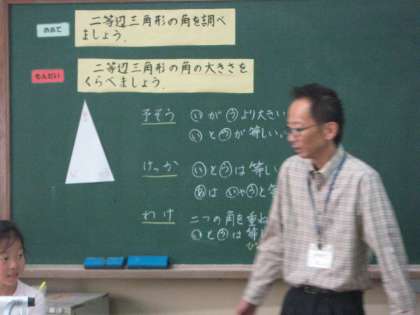 めあて
二等辺三角形の角を調べ
ましょう。
もんだい
二等辺三角形の角の大きさを
くらべましょう。
あ
予そう
いがうより大きい
いとうが等しい。
けっか
いとうは等し
あはいやうと
わけ
二つの角を重ね
いとうは等し